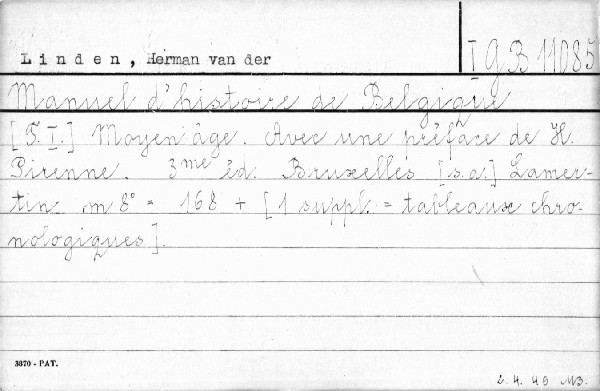 Linden, Herman van der
I G B 11085
Manuel d'histoire de Belgique
[T. I.] Moyen âge. Avec une préface de H.
Pirenne. 3me éd. Bruxelles [s.a.] Lamer-
tin. in 8° = 168 + [1 suppl. = tableaux chro-
nologiques].
3370 - PAT.
2. 4. 49 MB.